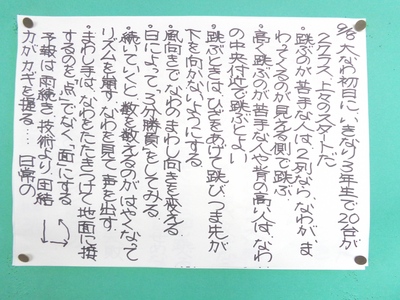 9/6 大なわ初日に、いきなり3年生で20台が
2クラス、上々のスタートだ
・跳ぶのが苦手な人は、2列なら、なわが、ま
わってくるのが見える側で跳ぶ
・高く跳ぶのが苦手な人や背の高い人は、なわ
の中央付近で跳ぶとよい
・跳ぶときは、ひざをあげて跳び、つま先が
下を向かないようにする
・風向きで、なわのまわし向きを変える
・日によって、3分勝負をしてみる
・続いていくと、数を数えるのがはやくなって
リズムを崩す、なわを見て、声を出す
・まわし手は、なわをたたきつけて地面に接
するのを「点」でなく、「面」にする
予報は雨続き、技術より、団結
力がカギを握る…、日常の